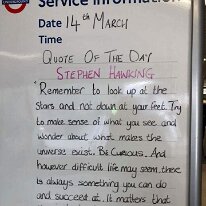 UNDERGROUND
Service Information
Date 14th March
Time
Quote Of The Day
Stephen Hawking
"Remember to look up at the
stars and not down at your feet. Try
to make sense of what you see and
wonder about what makes the
universe exist. Be Curious. And
however difficult life may seem, there
is always something you can do
and succeed at. It matters that